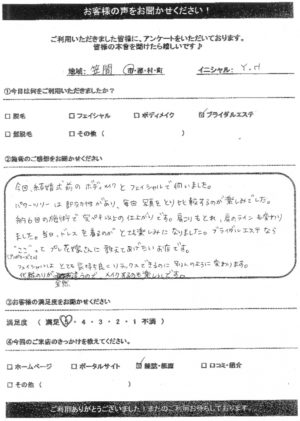 お客様の声をお聞かせください！
ご利用いただきました皆様に、アンケートをいただいております。
皆様の本音を聞けたら嬉しいです♪
地域: 笠間 市・郡・村・町 イニシャル: Y.H
①今日は何をご利用いただきましたか？
□ 脱毛 □ フェイシャル □ ボディメイク ☑ ブライダルエステ
□ 部脱毛 □ その他 (
②施術のご感想をお聞かせください
今回、結婚式前のボディメイクとフェイシャルで伺いました。
パワーツリーは即効性があり、毎回写真をとり比較するのが楽しみでした。
納得の仕上がりです。肩こりもとれ、肩のラインも変わり
ました。当日、ドレスを着るのがとても楽しみになりました。ブライダルエステなら
"ここ"ってプレ花嫁さんに教えてあげたいお店です。
フェイシャルは とても気持ち良くリラックスできるのに 別人のように変わります。
化粧のりが全然違うので メイクするのも楽しいです。
③お客様の満足度をお聞かせください
満足度 ( 満足 5 ・ 4 ・ 3 ・ 2 ・ 1 不満 )
④今回のご来店のきっかけを教えてください。
□ ホームページ □ ポータルサイト ☑ 雑誌・紙面 □ 口コミ・紹介
□ その他 (
ご利用ありがとうございました！またのご利用お待ちしております。